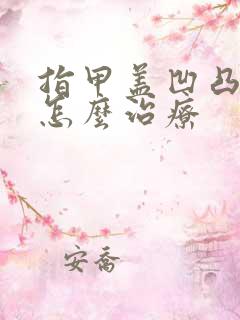 指甲盖凹凸
怎麼治療
安喬